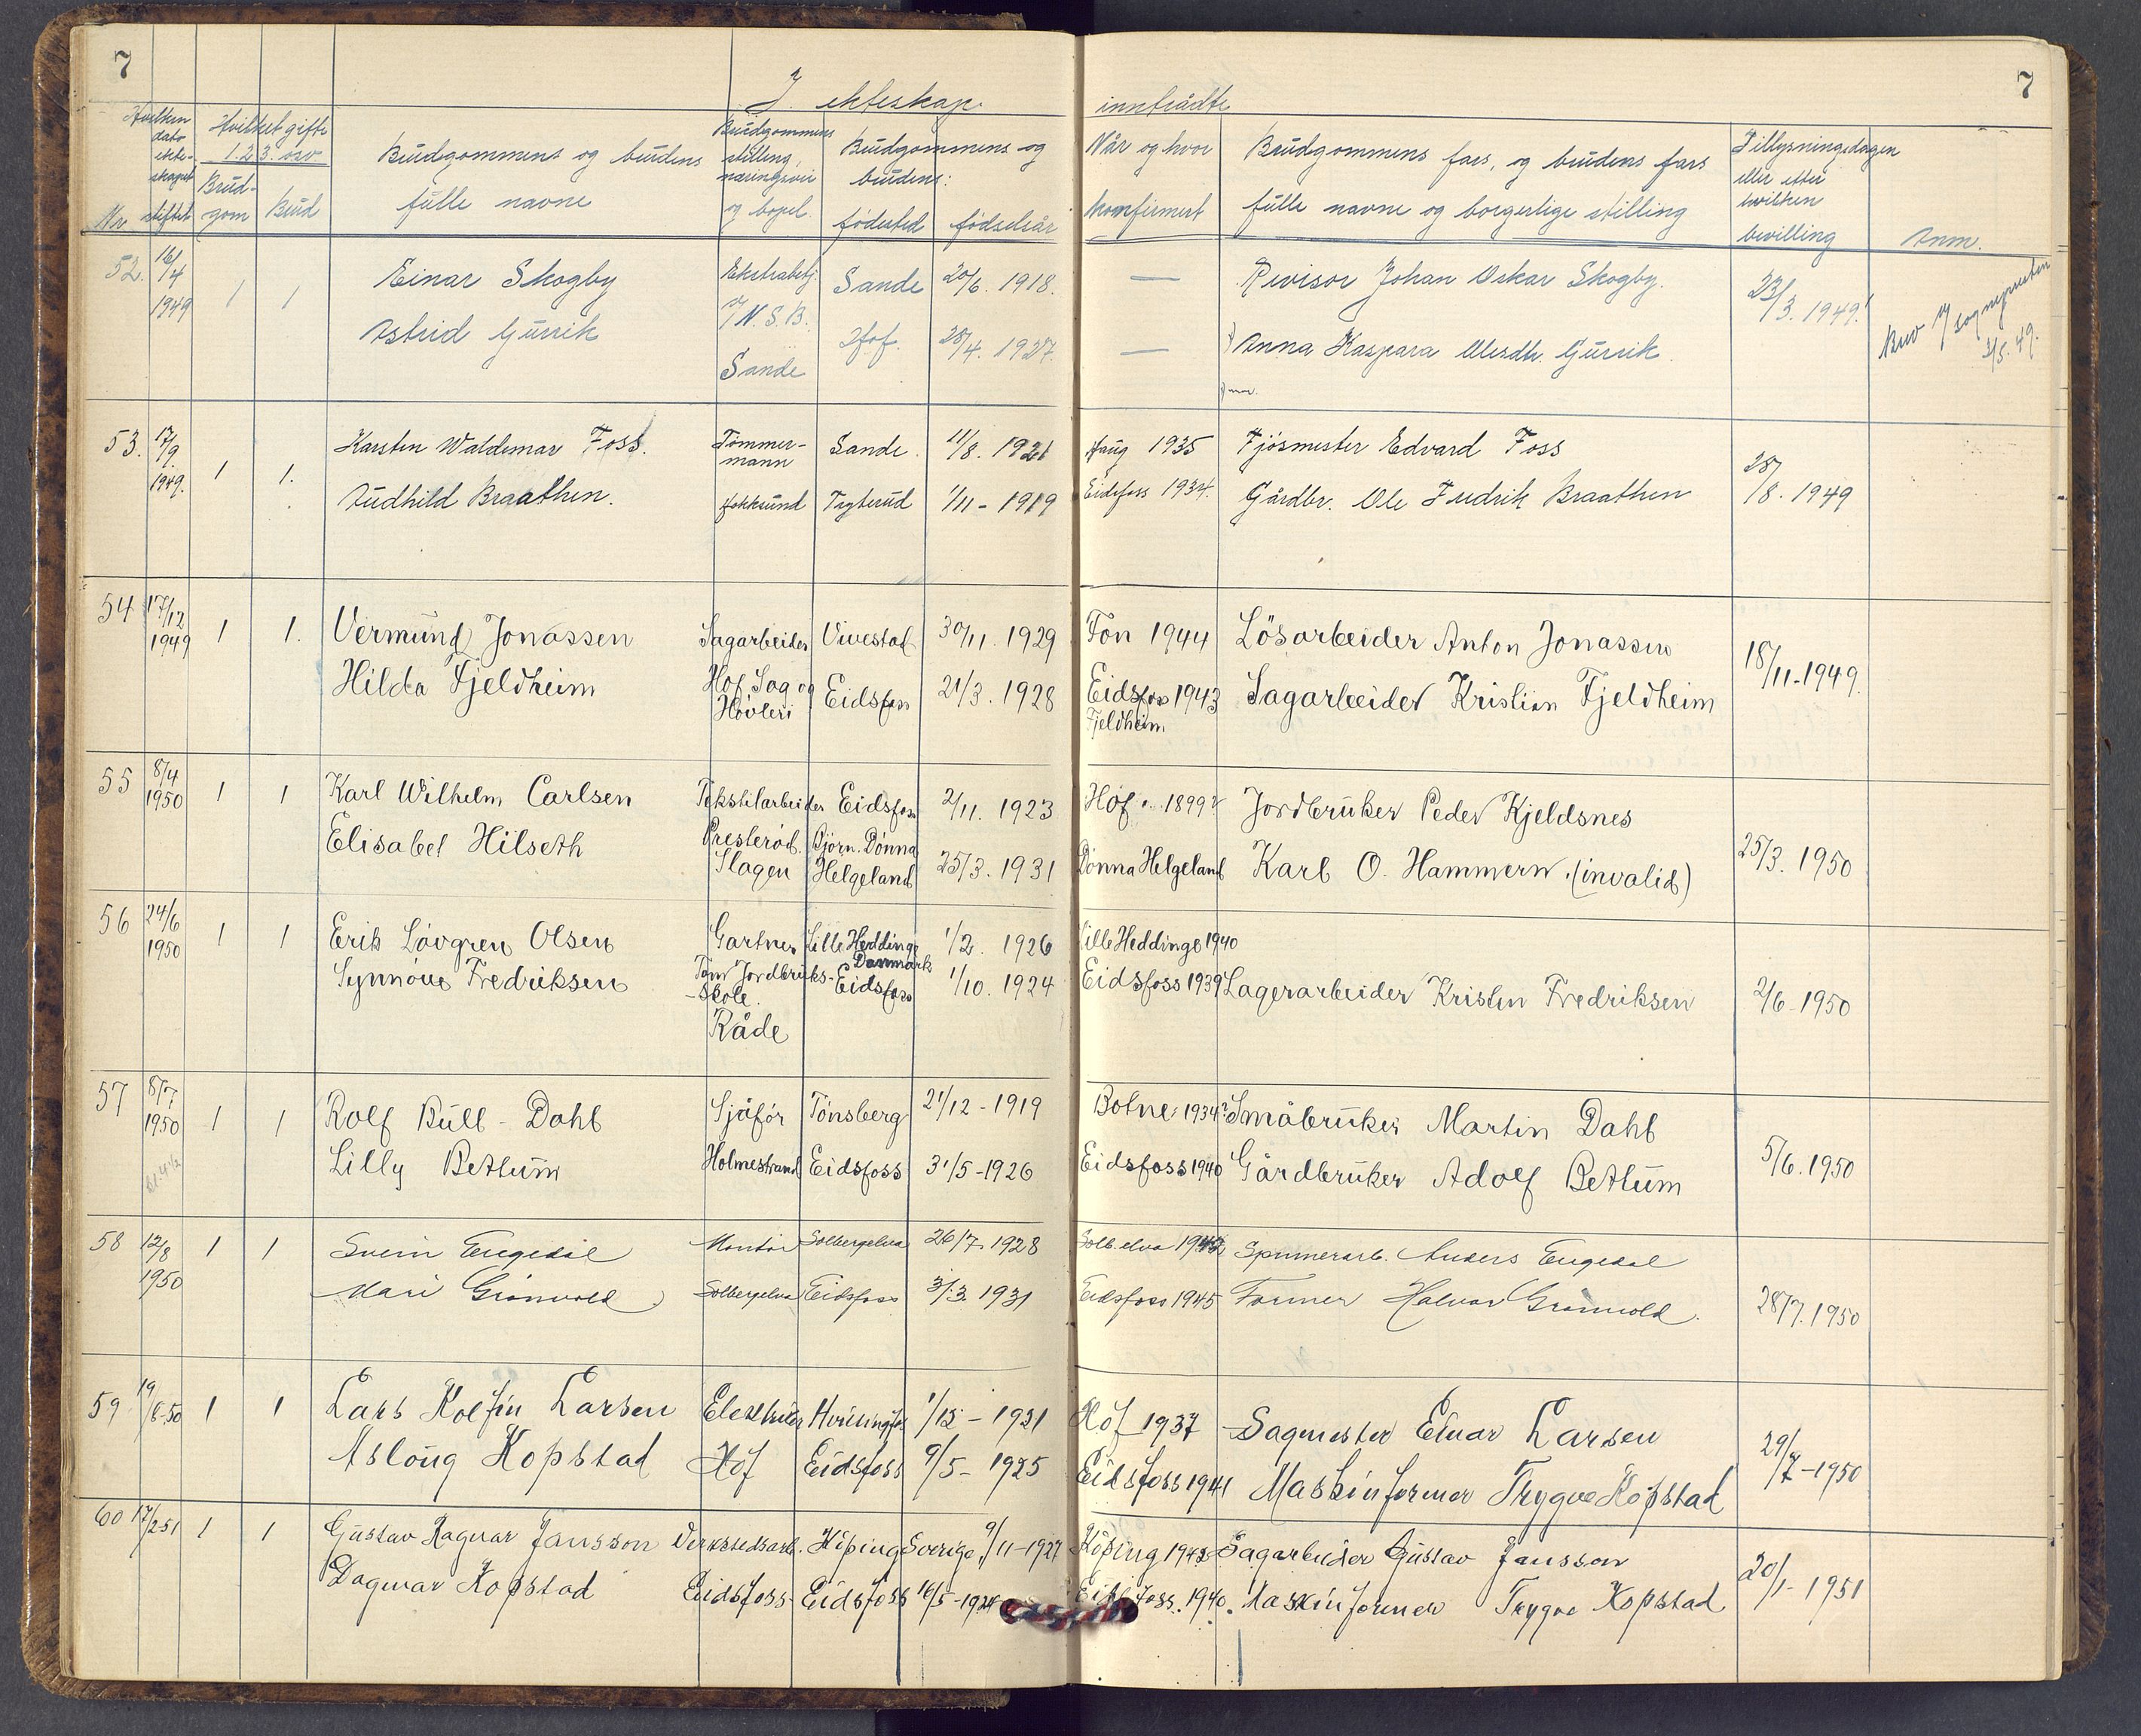 7
7
I ekteskap inntrådte
Nr
Hvilken dato ekteskapet stiftet
Hvilket gifte 1. 2. 3. osv
Brudgom
Brud
Brudgommens og brudens fulle navne
Brudgommens stilling, næringsvei og bopel
Brudgommens og brudens:
fødested
fødselsår
Når og hvor konfirmert
Brudgommens fars, og brudens fars fulle navne og borgerlige stilling
Tillysningsdagen eller etter hvilken bevilling
Anm.
52. 16/4 1949 1 1
Einar Skogby Ekstrabetj. Sande 20/6. 1918. — Revisor Johan Oskar Skogby. 23/3. 1949.
Astrid Gurrik N.S.B. Sande Hof. 28/4. 1927. — Anna Kaspara Gurrik
Brev sognepresten 49.
53. 17/9. 1949. 1 1.
Karsten Waldemar Foss. Tømmermann Sande 11/8. 1921 Haug 1935 Fjøsmester Edvard Foss 28/8. 1949
Audhild Braathen. Hokksund Tryterud 1/11 - 1919 Eidsfoss 1934. Gårdbr. Ole Fredrik Braathen
54 17/12 1949 1 1.
Vermund Jonassen Sagarbeider Vivestad 30/11. 1929 Fon 1944 Lösarbeider Anton Jonassen 18/11-1949.
Hilda Fjeldheim Hof Sag og Høvleri Eidsfoss 21/3. 1928 Eidsfoss 1943 Sagarbeider Kristian Fjeldheim
Fjeldheim
55 8/4 1950 1 1
Karl Wilhelm Carlsen Tekstilarbeider Eidsfoss 2/11. 1923 Hof 1899? Jordbruker Peder Kjeldsnes 25/3. 1950
Elisabet Hilseth Presterød. Slagen Bjørn. Dønna Helgeland 25/3. 1931 Dønna Helgeland Karl O. Hammern. (invalid)
56 24/6 1950 1 1
Erik Lövgren Olsen Gartner Lille Heddinge Danmark 1/2. 1926 Lille Heddinge 1940
Synnöve Fredriksen Tomb Jordbruks-skole. Råde Eidsfoss 1/10. 1924 Eidsfoss 1939 Lagerarbeider Kristen Fredriksen 2/6-1950
57 8/7 1950 1 1
kl. 4 1/2
Rolf Bull - Dahl Sjåför Tönsberg 21/12 - 1919 Botne 1934? Småbruker Martin Dahl 5/6. 1950
Lilly Betlum Holmestrand Eidsfoss 31/5-1926 Eidsfoss 1940 Gårdbruker Adolf Betlum
58 12/8 1950 1 1
Svein Engedal Montör Solbergelva 26/7 1928 Solb.elva 1942 Spinnerarb. Anders Engedal 28/7. 1950
Mari Grönvold Solbergelva Eidsfoss 3/3. 1931 Eidsfoss 1945 Former Halvor Grönvold.
59 19/8-50 1 1
Lars Kolfin Larsen Elektriker 1/12 - 1921 Hof 1937 Sagmester Einar Larsen 29/7-1950
Aslaug Kopstad Hof Eidsfoss 9/5- 1925 Eidsfoss 1941 Maskinformer Trygve Kopstad
60 17/2 51 1 1
Gustav Ragnar Jansson Verkstedsarb. Köping Sverige. 9/11-1927 Köping 1942 Sagarbeider Gustav Jansson 20/1- 1951
Dagmar Kopstad Eidsfoss Eidsfoss 16/5-1924 Eidsfoss. 1940. Maskinformer Trygve Kopstad